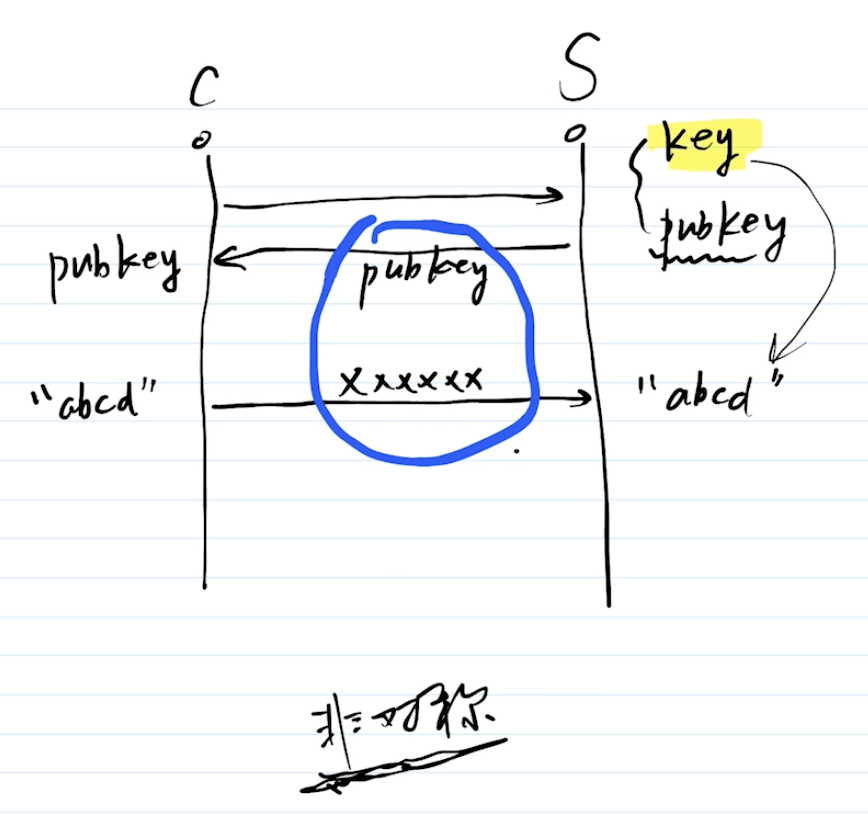 C
S
key
pubkey
pubkey
pubkey
"abcd"
xxxxxx
"abcd"
非对称